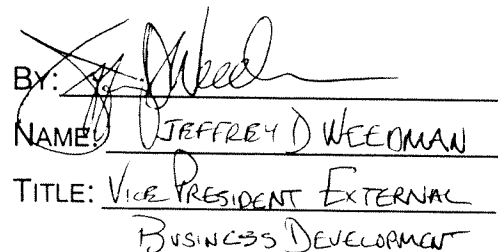 BY: J. D Weed
NAME: JEFFREY D WEEDMAN
TITLE: VICE PRESIDENT EXTERNAL
BUSINESS DEVELOPMENT